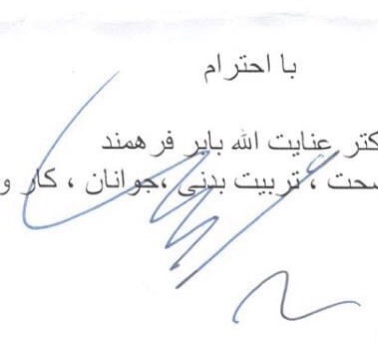 با احترام
کتر عنایت الله بابر فرهمند
صحت ، تربیت بدنی ،جوانان ، کار و